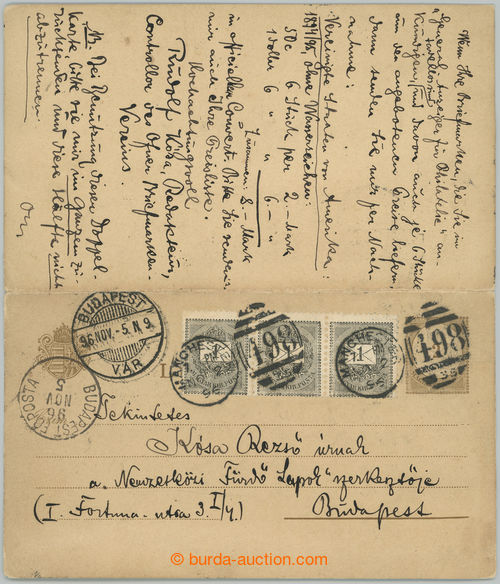 Wenn Ihre Briefmarken, die Sie im
„General-Anzeiger für Philatelie" an-
kündigen, tadellos sind und davon auch je 6 Stücke
zu den angebotenen Preise liefern,
dann senden Sie mir per Nach-
nahme:
Vereinigte Staaten von Amerika:
1894/95 ohne Wasserzeichen:
50c 6 Stück per 2 – Mark
1 Dollar 6 " " 6 – "
Zusammen: 8 – Mark
in officiellen Couvert. Bitte Sie senden
mir auch Ihre Preisliste.
Hochachtungsvoll
Rudolf Kósa, Redakteur,
Controllor der Ofner Briefmarken-
Vereins.
NB. Bei Benützung dieser Doppel-
Karte bitte sie mir im Ganzen zu-
rücksenden und diese Hälfte nicht
abzutrennen.
BUDAPEST
96 NOV. - 5. N 9
VÁR
BUDAPEST FŐPOSTA
96
NOV
5
MANCHESTER
498
498
1
1
1
Tekintetes
Kósa Rezső úrnak
a „Nemzetközi Fürdő Lapok" szerkesztője
(I. Fortuna-utca 3. I/4.) Budapest
© burda-auction.com